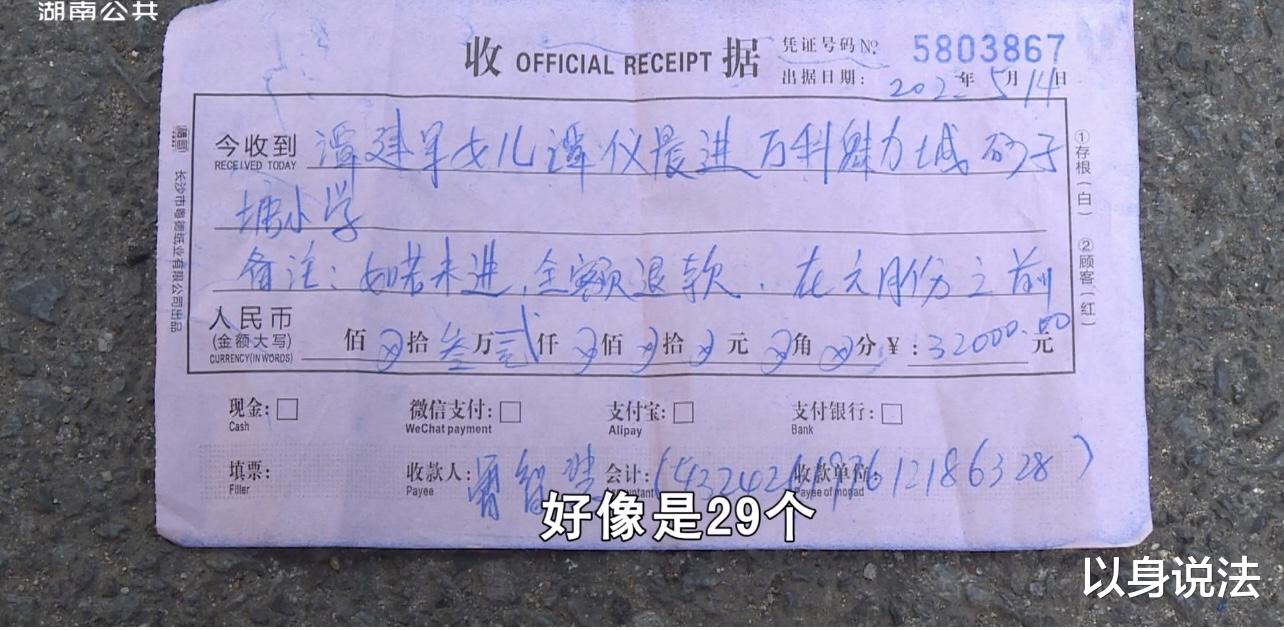 湖南公共
收 OFFICIAL RECEIPT 据
凭证号码№ 5803867
出据日期: 202 年5月14日
今收到 谭建军女儿谭仪晨进万科魅力城砂子
RECEIVED TODAY
塘小学
备注:如若未进,全额退款.在六月份之前
人民币 佰 拾叁万贰仟 佰 拾 元 角 分 ¥:32000.00元
(金额·大写)
CURRENCY(IN WORDS)
现金:□ 微信支付:□ 支付宝:□ 支付银行:□
Cash WeChat payment Alipay Bank
填票: 收款人: 会计: 收款单位
Filler Payee Payee of monad
①存根(白) ②顾客(红)
长沙市粤德纸业有限公司出品
好像是29个
以身说法